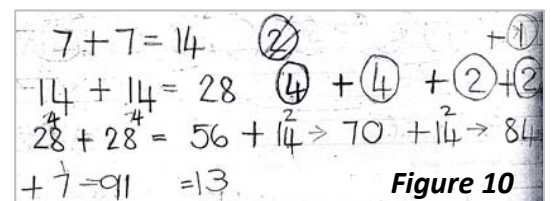 7 + 7 = 14 2 + 1
14 + 14 = 28 4 + 4 + 2 + 2
4 4 2 2
28 + 28 = 56 + 14 → 70 + 14 → 84
1
+ 7 = 91 = 13
Figure 10